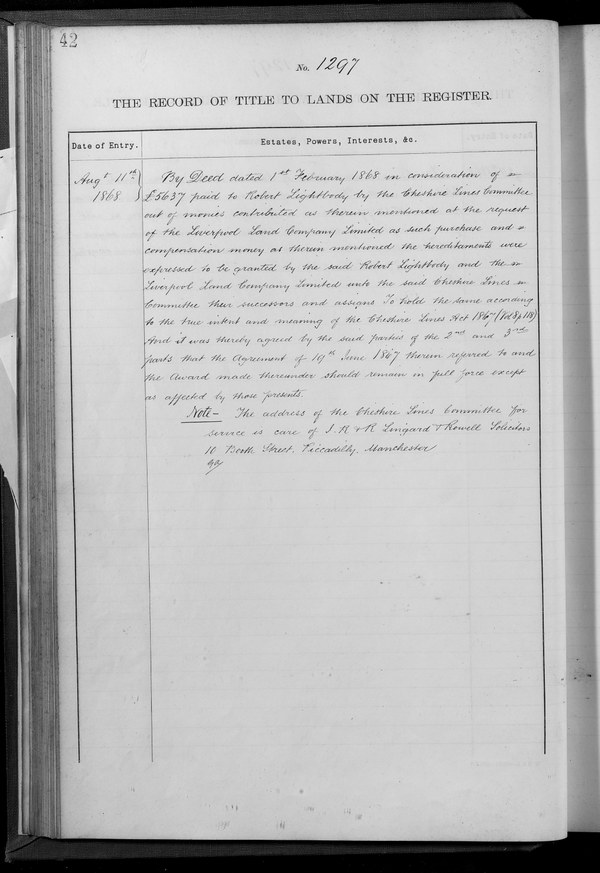 42
No. 1297
THE RECORD OF TITLE TO LANDS ON THE REGISTER.
Date of Entry.
Estates, Powers, Interests, &c.
Augt 11th
1868
By Deed dated 1st February 1868 in consideration of
£5637 paid to Robert Lightbody by the Cheshire Lines Committee
out of monies contributed as therein mentioned at the request
of the Liverpool Land Company Limited as such purchase and
compensation money as therein mentioned the hereditaments were
expressed to be granted by the said Robert Lightbody and the
Liverpool Land Company Limited unto the said Cheshire Lines
Committee their successors and assigns To hold the same according
to the true intent and meaning of the Cheshire Lines Act 1867
And it was thereby agreed by the said parties of the 2nd and 3rd
parts that the Agreement of 19th June 1867 therein referred to and
the Award made thereunder should remain in full force except
as affected by those presents.
Note - The address of the Cheshire Lines Committee for
service is care of J. R & R Lingard & Rowell Solicitors
10 Booth Street, Piccadilly, Manchester